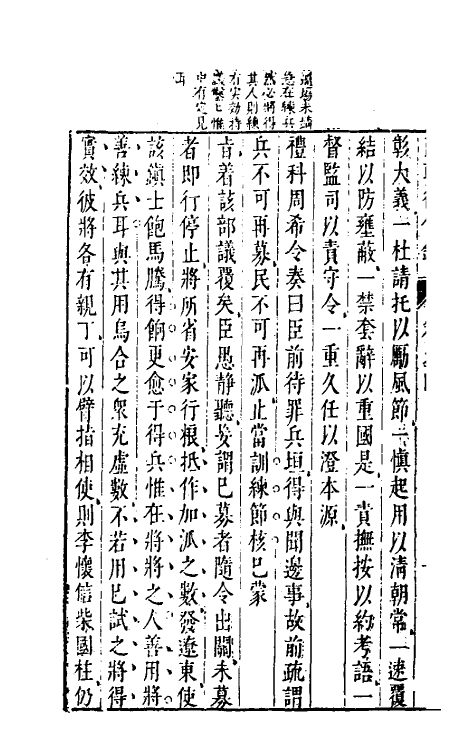 邊馬未靖
急在練兵
然必將得
其人則練
有实効持
議𨤲𨤲惟
中有定見
耳
彰大義一杜請托以勵風節一慎起用以清朝常一速覆
結以防壅蔽一禁套辭以重國是一責撫按以約考語一
督監司以責守令一重久任以澄本源
禮科周希令奏曰臣前待罪兵垣得與聞邊事故前疏謂
兵不可再募民不可再派止當訓練節核已蒙
旨着該部議覆矣臣愚静聽妄謂已募者隨令出關未募
者即行停止將所省安家行粮抵作加派之數發遼東使
該鎮士飽馬騰得餉更愈于得兵惟在將將之人善用將
善練兵耳與其用烏合之衆充虛數不若用已試之將得
實效彼將各有親丁可以臂指相使則李懷信柴國柱仍